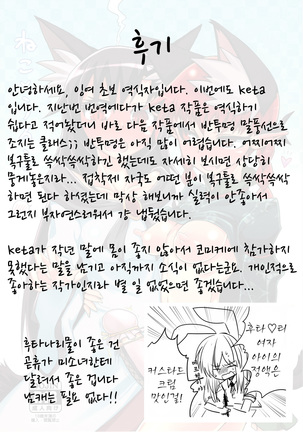 후기
안녕하세요, 잉여 초보 역식자입니다. 이번에도 keta
입니다. 지난번 번역에다가 keta 작품은 역식하기
쉽다고 적어놨더니 바로 다음 작품에서 반투명 말풍선으로
조지는 클래스;; 반투명은 아직 많이 어렵습니다. 어찌저찌
복구툴로 쓱싹쓱싹하긴 했는데도 자세히 보시면 상당히
뭉게놓은지라... 접착제 자국도 어떤 분이 복구툴로 쓱싹쓱싹
하면 된다 하셨는데 막상 해보니까 실력이 안좋아서
그런지 부자연스러워서 걍 냅뒀습니다.
keta가 작년 말에 몸이 좋지 않아서 코미케에 참가하지
못했다는 말을 남기고 아직까지 소식이 없다는군요. 개인적으로
좋아하는 작가인지라 별 일 없었으면 좋겠습니다...
후타나리물이 좋은 건
곧휴가 미소녀한테
달려서 좋은 겁니다
남캐는 필요 없다!!
후타♡리
여자
아이의
정액은
커스타드
크림
맛인걸!